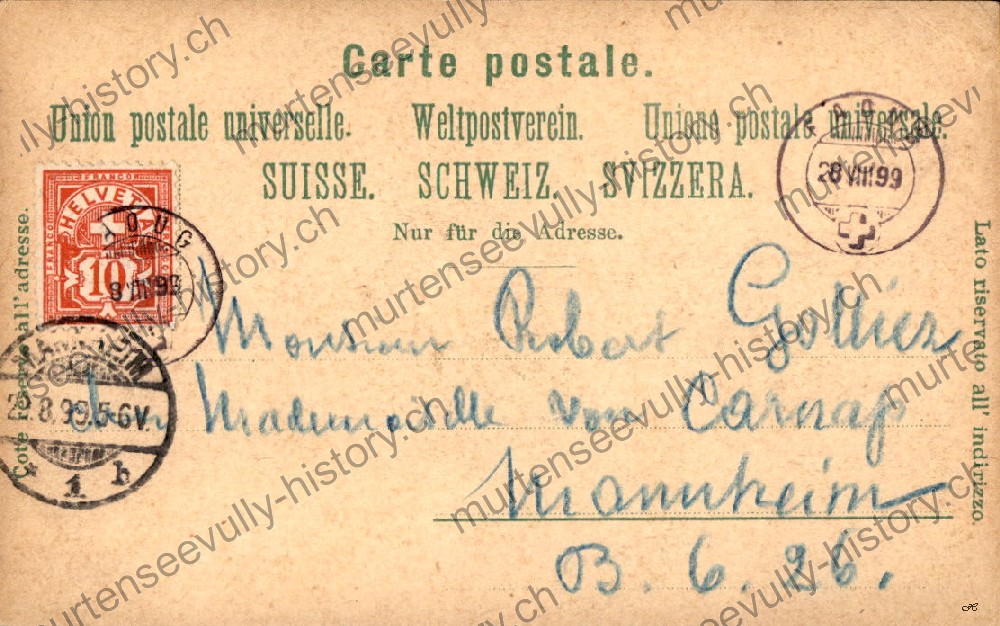 Carte postale.
Union postale universelle. Weltpostverein. Unione postale universale.
SUISSE. SCHWEIZ. SVIZZERA.
Nur für die Adresse.
Côté réservé à l'adresse.
Lato riservato all' indirizzo.
FRANCO
HELVETIA
FRANCO
10
8 VIII 99
28 VIII 99
MANNHEIM
8.99.5-6V.
1 b
Monsieur Robert Golliez
Mademoiselle von Carnap
Mannheim
B. 6. 26.
murtenseevully-history.ch